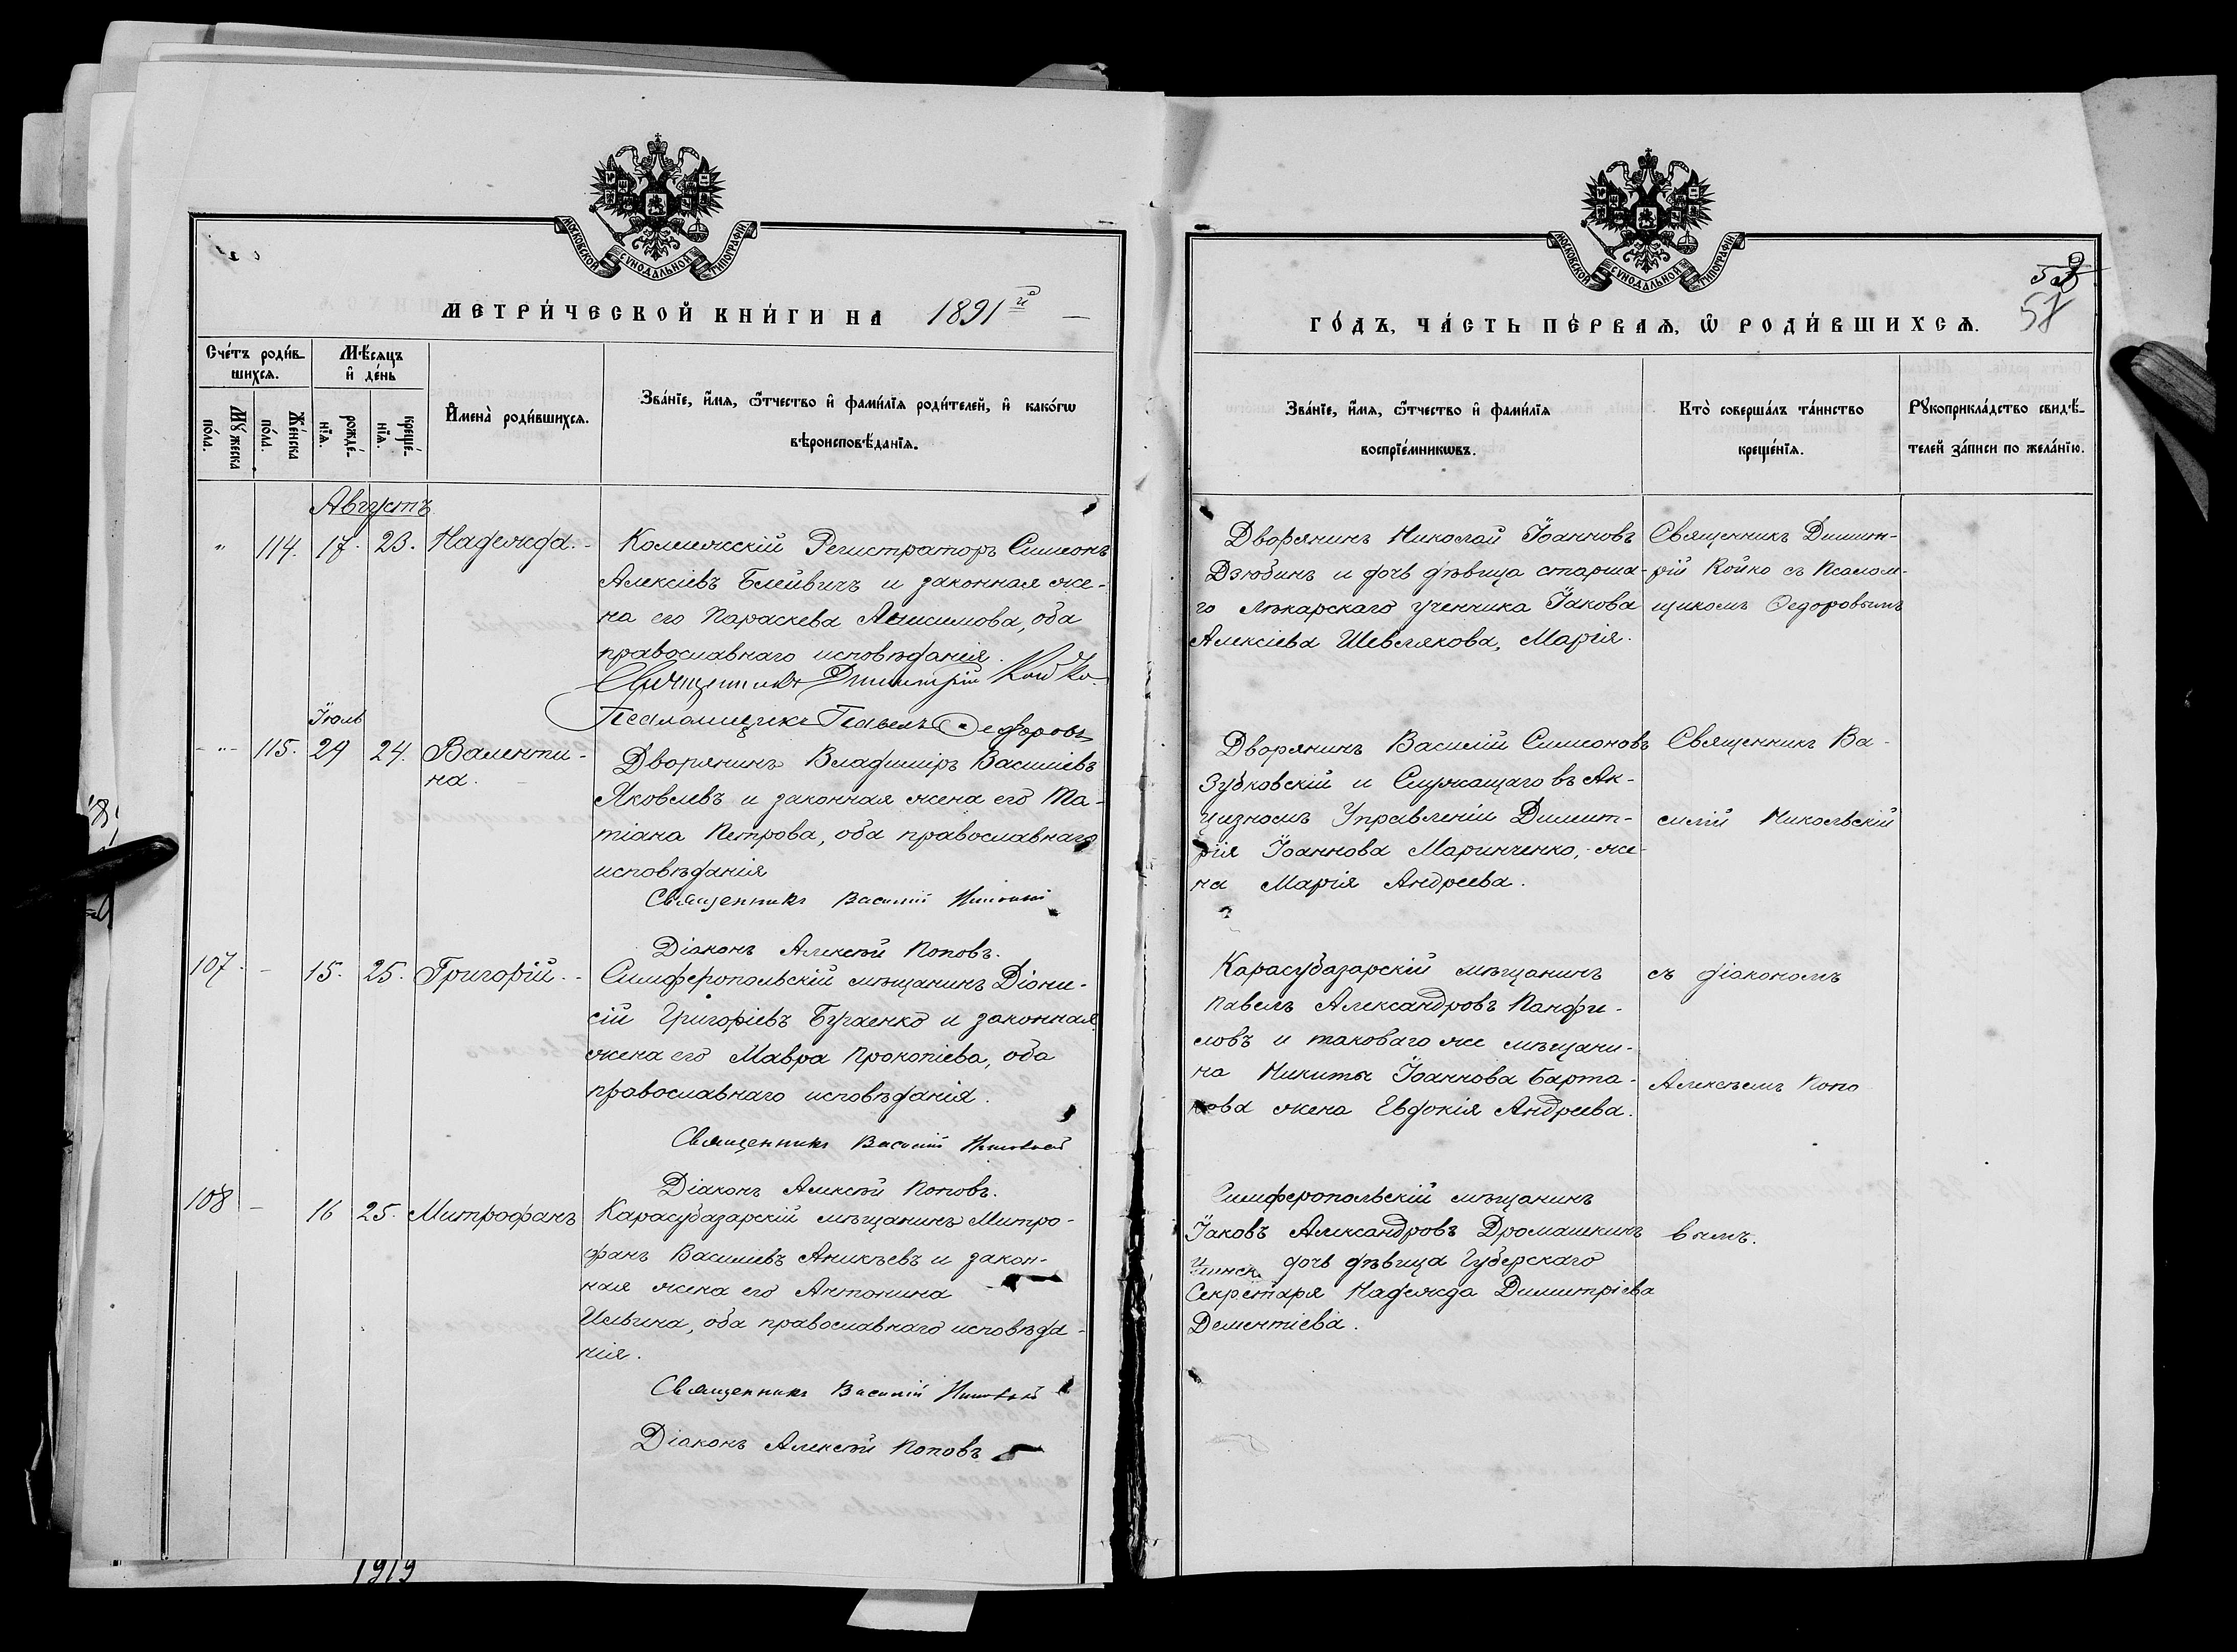 МОСКОВСКОЙ СУНОДАЛЬНОЙ ТИПОГРАФІИ
МЕТРИ́ЧЕСКОЙ КНИ́ГИ НА 1891й
Сче́тъ роди́вшихсѧ.
Мꙋ́жеска по́ла.
Же́нска по́ла.
Мѣ́сѧцъ и҆ де́нь
рожде́нїѧ.
креще́нїѧ.
И҆мена̀ роди́вшихсѧ.
Зва́нїе, и҆́мѧ, ѻ҆́тчество и҆ фами́лїѧ роди́телей, и҆ како́гѡ
вѣроисповѣ́данїѧ.
Августъ
" 114. 17. 23. Надежда.
Коллежскій Регистраторъ Симеонъ
Алексіевъ Блейвичъ и законная же-
на его Параскева Анисимова, оба
православнаго исповѣданія.
Священникъ Димитрій Койко.
Псаломщикъ Павелъ Федоровъ
Іюль
" 115. 29 24. Валенти-
на.
Дворянинъ Владиміръ Василіевъ
Яковлевъ и законная жена его Та-
тіана Петрова, оба православнаго
исповѣданія
Священникъ Василій Никольскій
Діаконъ Алексѣй Поповъ.
107. - 15. 25. Григорій.
Симферопольскій мѣщанинъ Діони-
сій Григоріевъ Бугаенко и законная
жена его Мавра Прокопіева, оба
православнаго исповѣданія.
Священникъ Василій Никольскій
Діаконъ Алексѣй Поповъ.
108 - 16 25. Митрофанъ
Карасубазарскій мѣщанинъ Митро-
фанъ Василіевъ Аникѣевъ и закон-
ная жена его Антонина
Ильина, оба православнаго исповѣда-
нія.
Священникъ Василій Никольскій
Діаконъ Алексѣй Поповъ
1919
МОСКОВСКОЙ СУНОДАЛЬНОЙ ТИПОГРАФІИ
58
ГО́ДЪ, ЧА́СТЬ ПЕ́РВАѦ, Ѡ҆ РОДИ́ВШИХСѦ.
Зва́нїе, и҆́мѧ, ѻ҆́тчество и҆ фами́лїѧ
воспрїе́мникѡвъ.
Кто̀ соверша́лъ та́инство
креще́нїѧ.
Рꙋкоприкла́дство свидѣ́-
телей за́писи по жела́нїю.
Дворянинъ Николай Іоанновъ
Дзюбинъ и дочь дѣвица старша-
го лѣкарскаго ученика Іакова
Алексіева Шевлякова, Марія.
Священникъ Димит-
рій Койко съ Псалом-
щикомъ Федоровымъ
Дворянинъ Василій Симеоновъ
Зубковскій и Служащаго въ Ак-
цизномъ Управленіи Димит-
рія Іоаннова Маринченко, же-
на Марія Андреева.
Священникъ Ва-
силій Никольскій
Карасубазарскій мѣщанинъ
Павелъ Александровъ Панфи-
ловъ и таковаго же мѣщани-
на Никиты Іоаннова Барта-
кова жена Евдокія Андреева.
съ діакономъ
Алексѣемъ Попо
Симферопольскій мѣщанинъ
Іаковъ Александровъ Дромашкинъ
дочь дѣвица Губерскаго
Секретаря Надежда Димитріева
Дементіева.
вымъ.